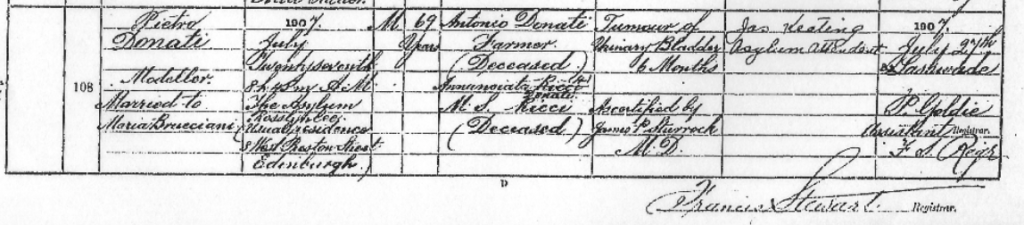 108
Pietro
Donati
Modellor.
Married to
Maria Brucciani
1907.
July
Twentyseventh
8 h 45 m A.M
The Asylum
Rosslynlee
Usual residence
8 West Preston Street
Edinburgh.
M
69
Years
Antonio Donati
Farmer.
(Deceased)
Annunciata
Donati
M. S. Ricci
(Deceased)
Tumour of
Urinary Bladder
6 Months
As certified by
James P. Sturrock
M.D.
Jas Keeting
Asylum Attendant
1907
July 27th
Lasswade
P. Goldie
Assistant Registrar.
F. S. Regr
D
Francis Stewart Registrar.